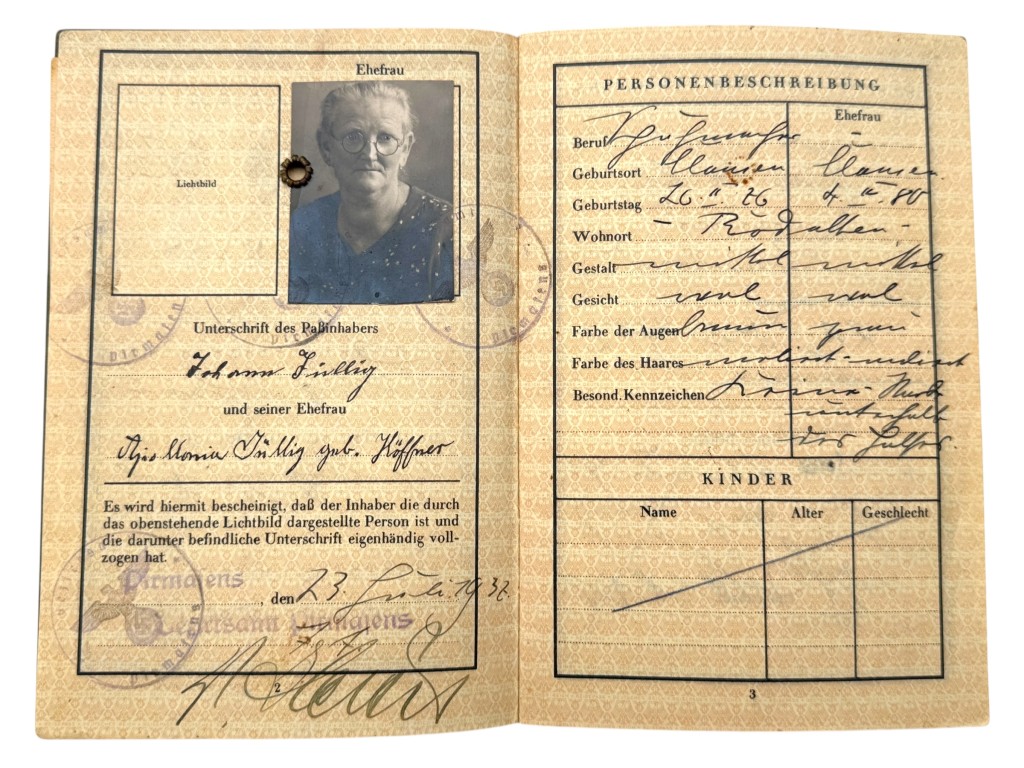 Ehefrau
Lichtbild
Unterschrift des Paßinhabers
Johann Füllig
und seiner Ehefrau
Apollonia Füllig geb. Höffner
Es wird hiermit bescheinigt, daß der Inhaber die durch
das obenstehende Lichtbild dargestellte Person ist und
die darunter befindliche Unterschrift eigenhändig voll-
zogen hat.
Pirmasens
, den 23. Juli 1937.
Pirmasens
Pirmasens
Pirmasens
Pirmasens
2
PERSONENBESCHREIBUNG
Ehefrau
Beruf Schuhmacher
Geburtsort Clausen Clausen
Geburtstag 26. II. 76
Wohnort Rodalben
Gestalt mittel mittel
Gesicht oval oval
Farbe der Augen braun grau
Farbe des Haares meliert meliert
Besond. Kennzeichen Keine
unterhalb
des Halses.
KINDER
Name Alter Geschlecht
3